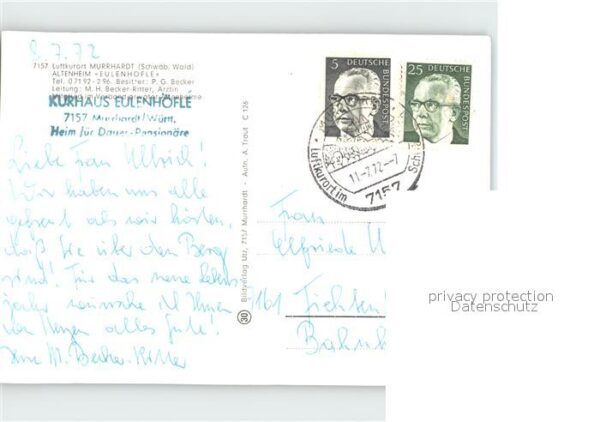 8.7.72
7157 Luftkurort MURRHARDT (Schwäb. Wald)
ALTENHEIM »EULENHÖFLE«
Tel. 07192-296. Besitzer: P. G. Becker
Leitung: M. H. Becker-Ritter, Ärztin
KURHAUS EULENHÖFLE
7157 Murrhardt/Württ.
Heim für Dauer-Pensionäre
Liebe Frau Ullrich!
Wir haben uns alle
gefreut als wir hörten,
daß Sie über den Berg
sind! Für das neue Lebens-
jahr wünsche ich Ihnen
von Herzen alles Gute!
Ihre M. Becker-Ritter
30 Bildverlag Utz, 7157 Murrhardt - Aufn. A. Traut C 126
5
DEUTSCHE
BUNDESPOST
25
DEUTSCHE
BUNDESPOST
Luftkurort im
11-7.72-7
7157
Frau
Elfriede U
7161 Fichten
Bahnh
privacy protection
Datenschutz